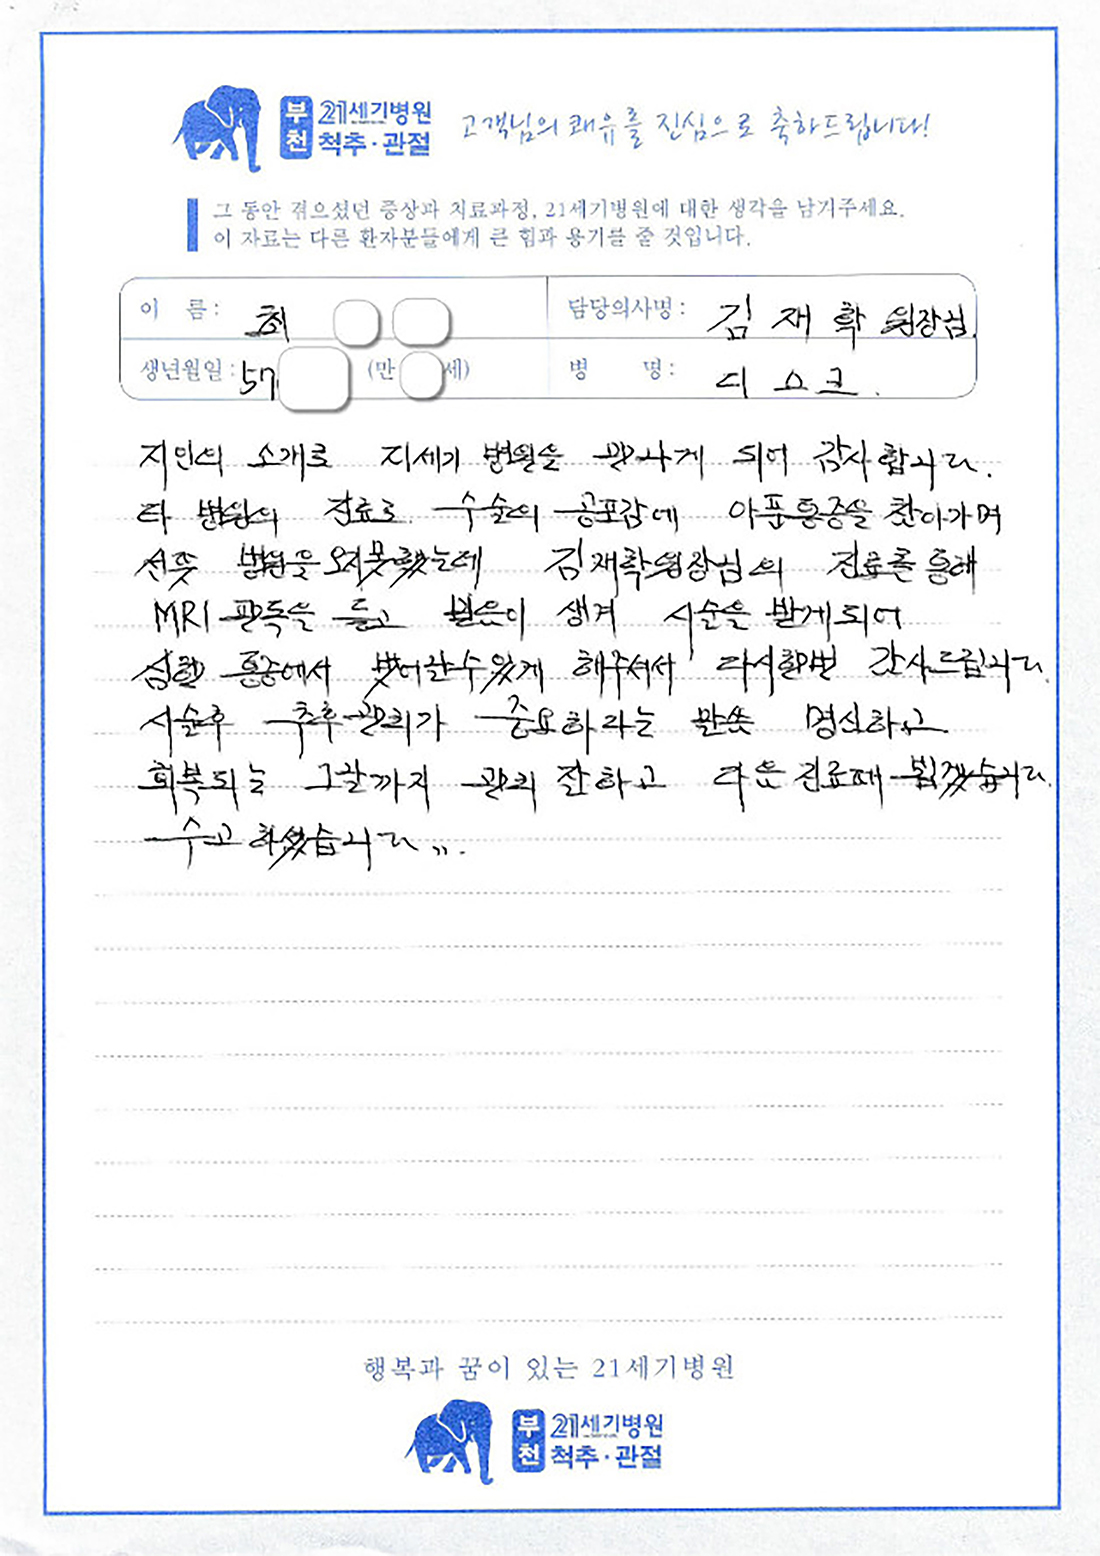 부천 21세기병원 척추·관절
고객님의 쾌유를 진심으로 축하드립니다!
그 동안 겪으셨던 증상과 치료과정, 21세기병원에 대한 생각을 남기주세요.
이 자료는 다른 환자분들에게 큰 힘과 용기를 줄 것입니다.
이 름 : 최 담당의사명 : 김재학 원장님.
생년월일 : 57 (만 세) 병 명 : 디스크.
지인의 소개로 21세기 병원을 만나게 되어 감사합니다.
타 병원의 진료로 수술의 공포감에 아픈통증을 참아가며
선뜻 병원을 오지못했는데 김재학원장님의 진료를 통해
MRI 판독을 듣고 믿음이 생겨 시술을 받게되어
심한 통증에서 벗어날수있게 해주셔서 다시한번 감사드립니다.
시술후 추후관리가 중요하라는 말씀 명심하고
회복되는 그날까지 관리 잘하고 다음 진료때 뵙겠습니다.
수고하셨습니다
행복과 꿈이 있는 21세기병원
부천 21세기병원 척추·관절